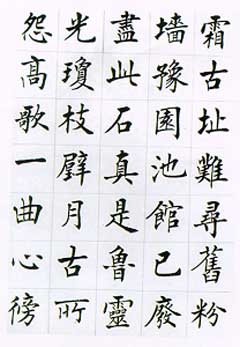 霜古址難尋舊粉
墻豫園池館已廢
盡此石真是魯靈
光瓊枝璧月古所
怨髙歌一曲心徬